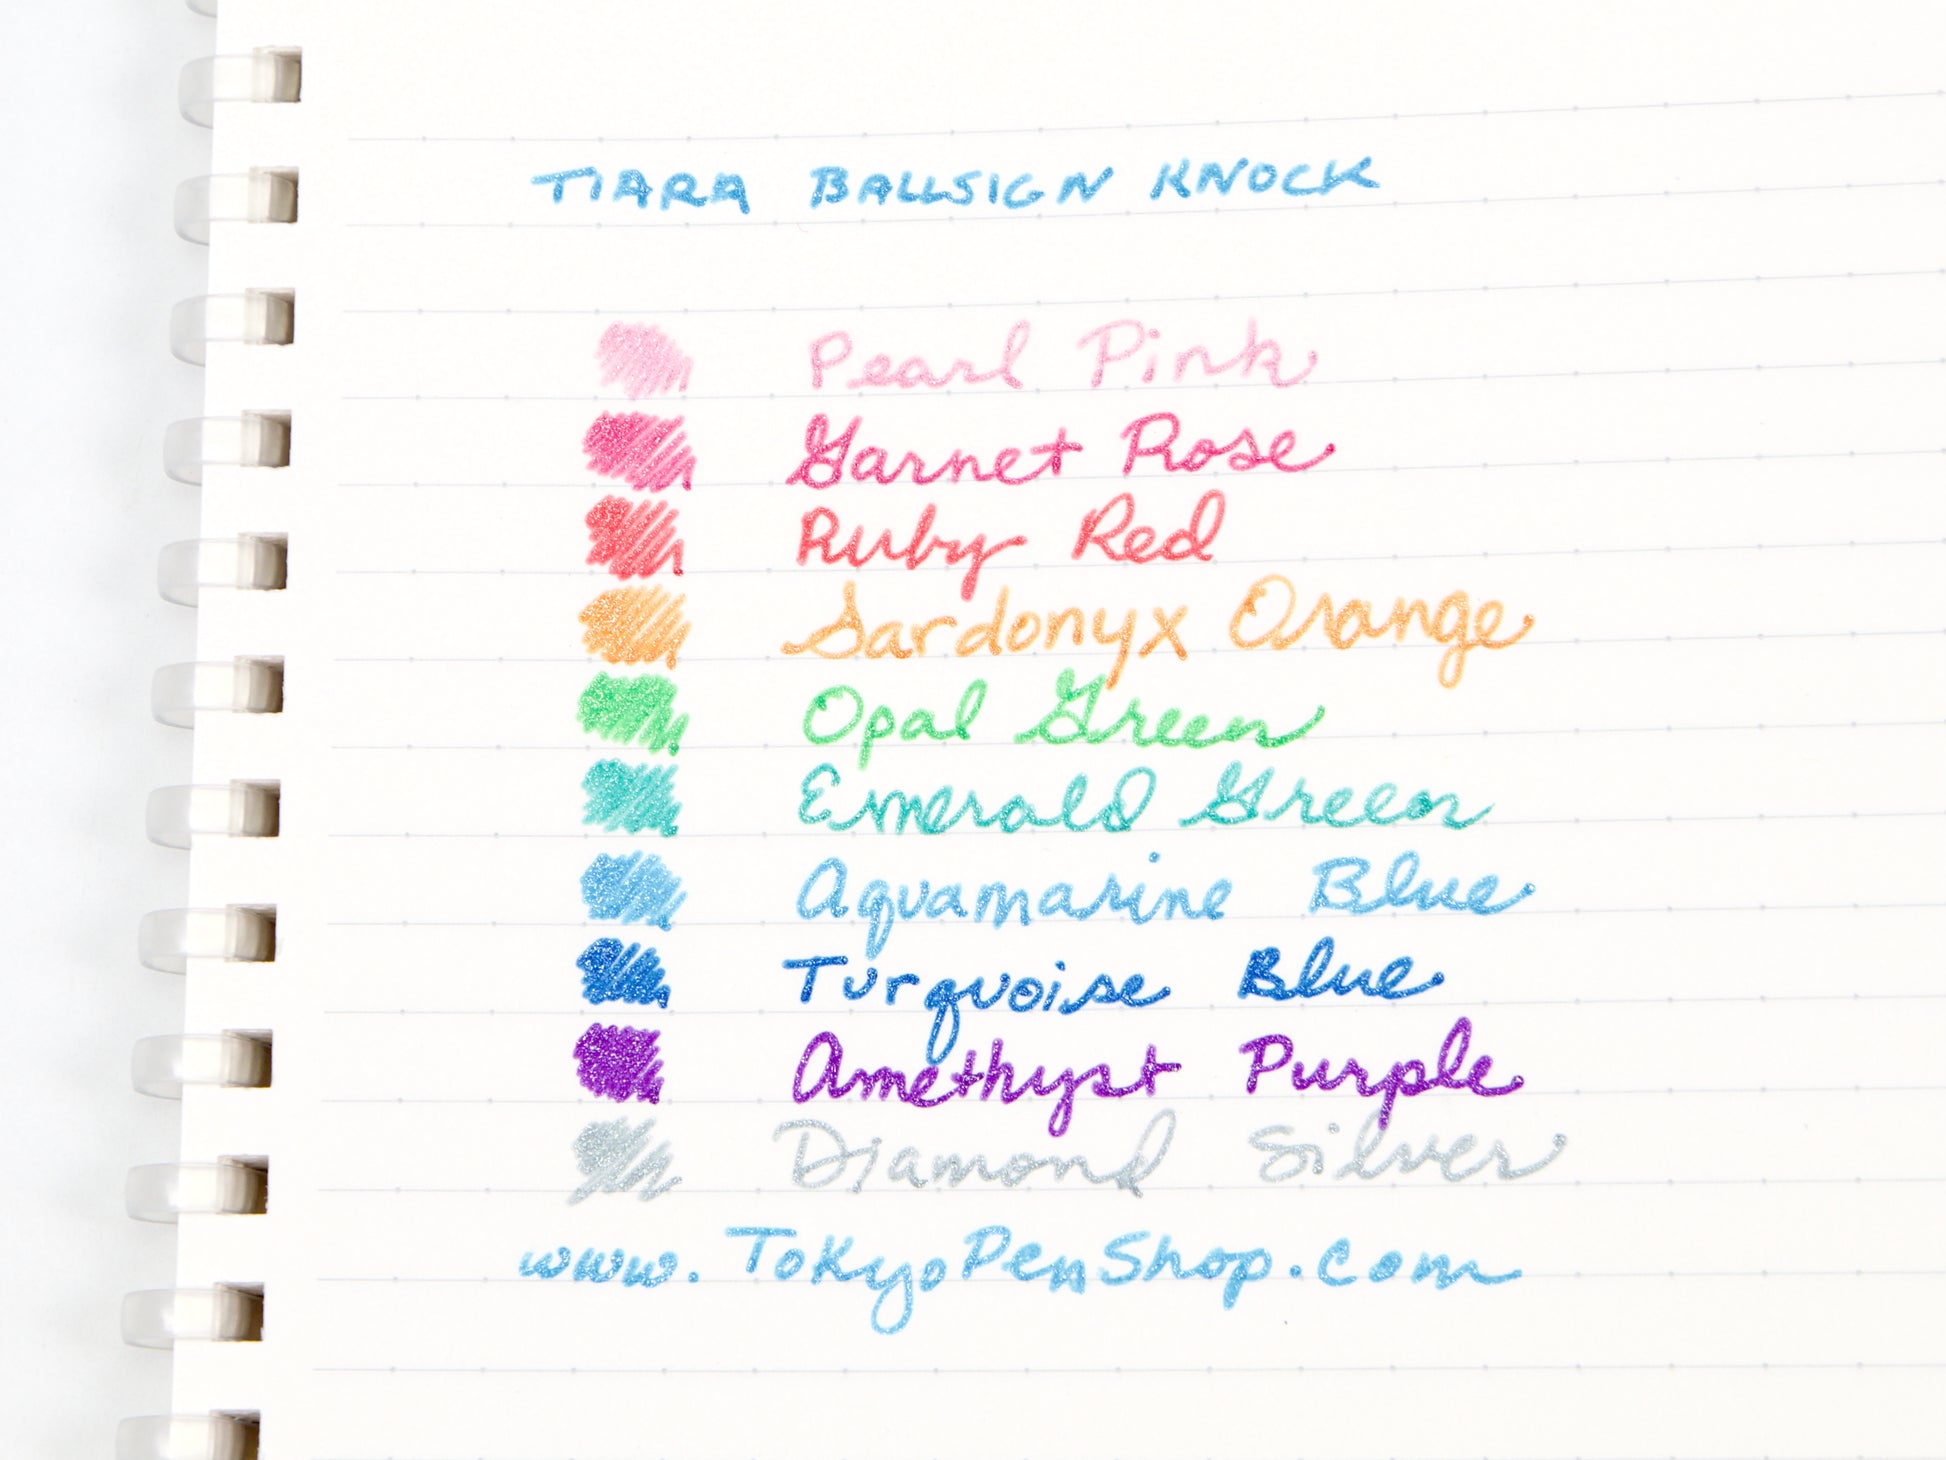 TIARA BALLSIGN KNOCK
Pearl Pink
Garnet Rose
Ruby Red
Sardonyx Orange
Opal Green
Emerald Green
Aquamarine Blue
Turquoise Blue
Amethyst Purple
Diamond Silver
www.TokyoPenShop.com